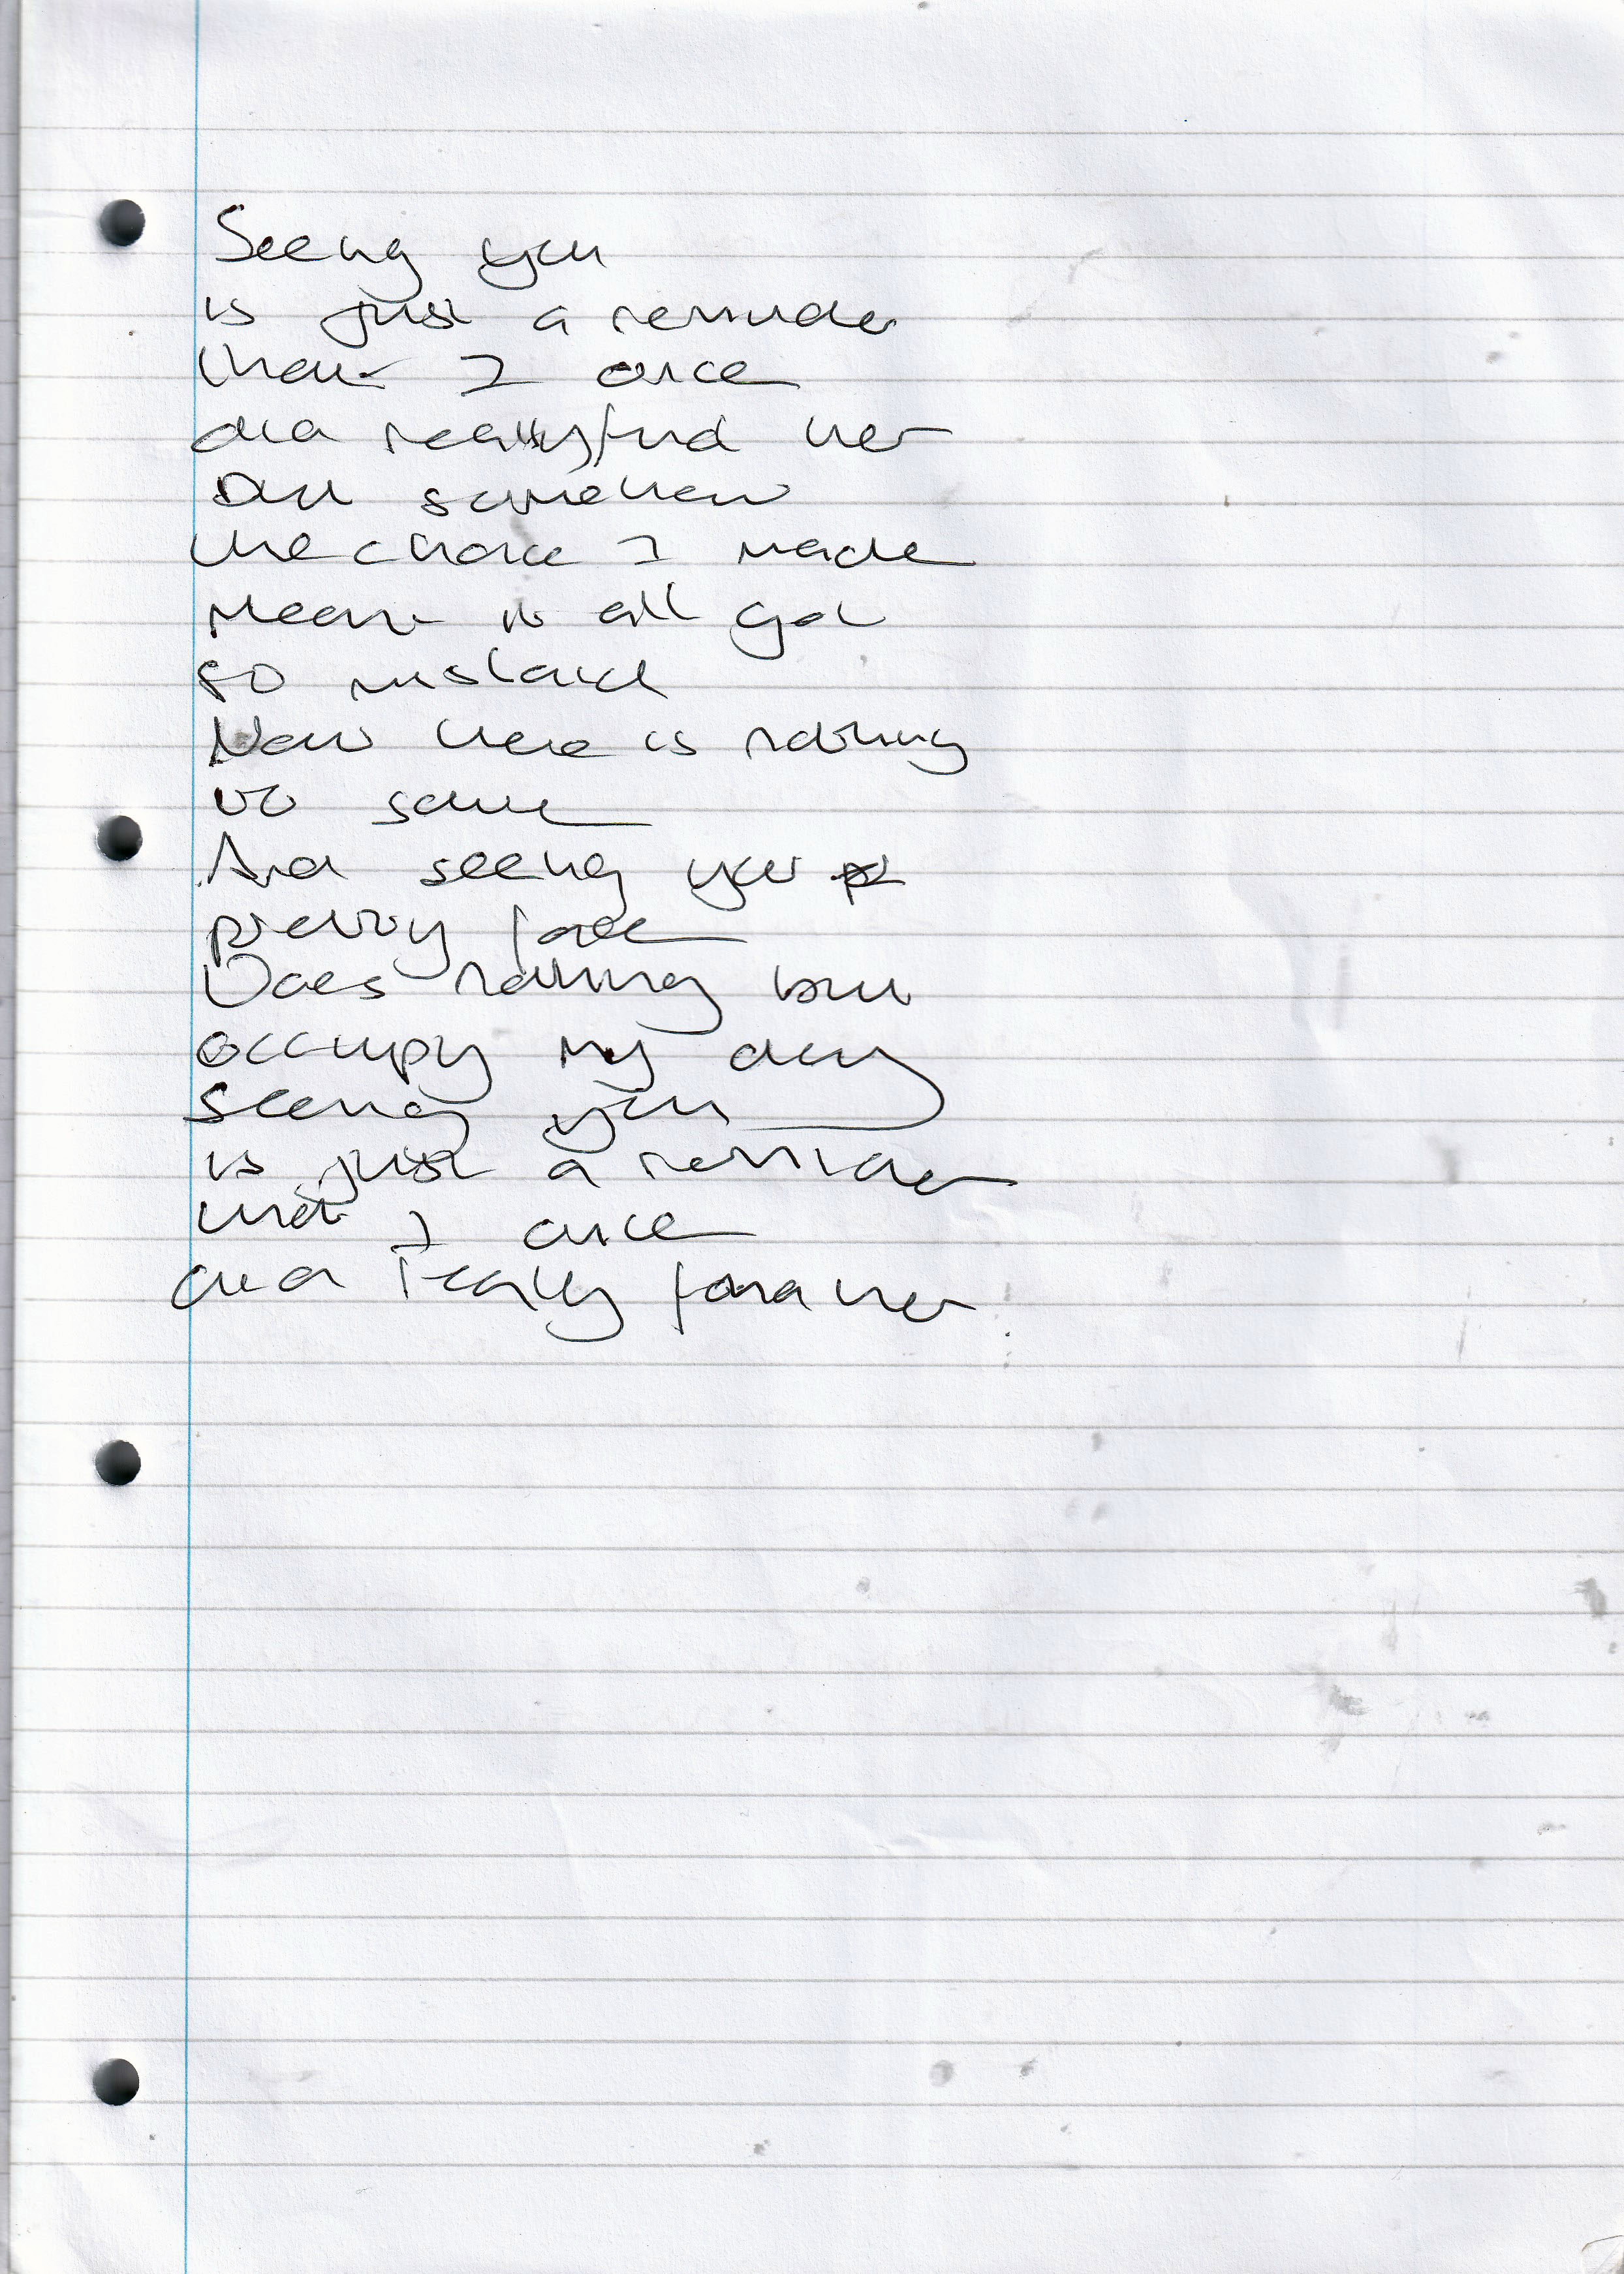 Seeing you
is just a reminder
that I once
did really find her
But somehow
the choice I made
Meant it all got
so mislaid
Now there is nothing
to save
And seeing your
pretty face
Does nothing but
occupy my day
seeing you
is just a reminder
that I once
did really find her